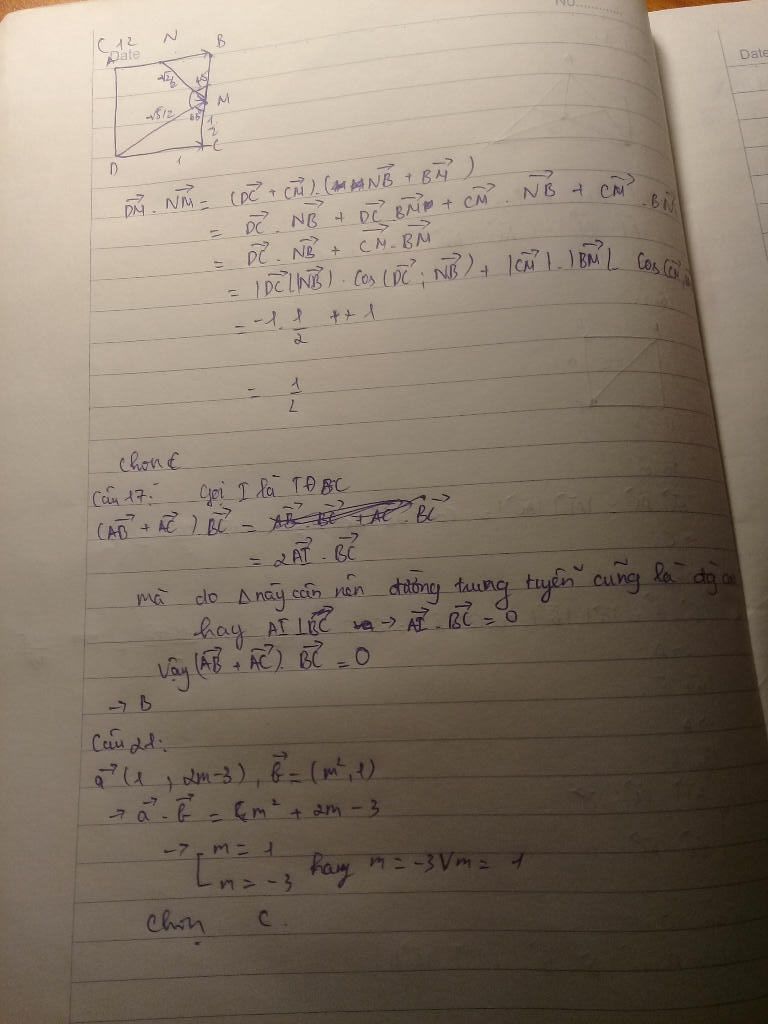 No.
Date
C 12
N
B
A
√2/2
45
M
√5/2
45
1/2
D
1
C
Date
DM→ . NM→ = (DC→ + CM→).(NB→ + BM→)
= DC→ . NB→ + DC→ BM→ + CM→ . NB→ + CM→ . BM→
= DC→ . NB→ + CM→ . BM→
= |DC→||NB→| . cos(DC→ ; NB→) + |CM→| . |BM→| cos(CM→,
= -1 . 1/2 + 1
= 1/2
Chọn C
Câu 17: Gọi I là TĐ BC
(AB→ + AC→) BC→ = AB→ . BC→ + AC→ . BC→
= 2AI→ . BC→
mà do Δ này cân nên đường trung tuyến cũng là đg cao
hay AI ⊥ BC → AI→ . BC→ = 0
Vậy (AB→ + AC→) . BC→ = 0
→ B
Câu 21:
a→ (1 , 2m-3), b→ = (m², 1)
→ a→ . b→ = m² + 2m - 3
→ [ m = 1
m = -3 hay m = -3 V m = 1
Chọn C.